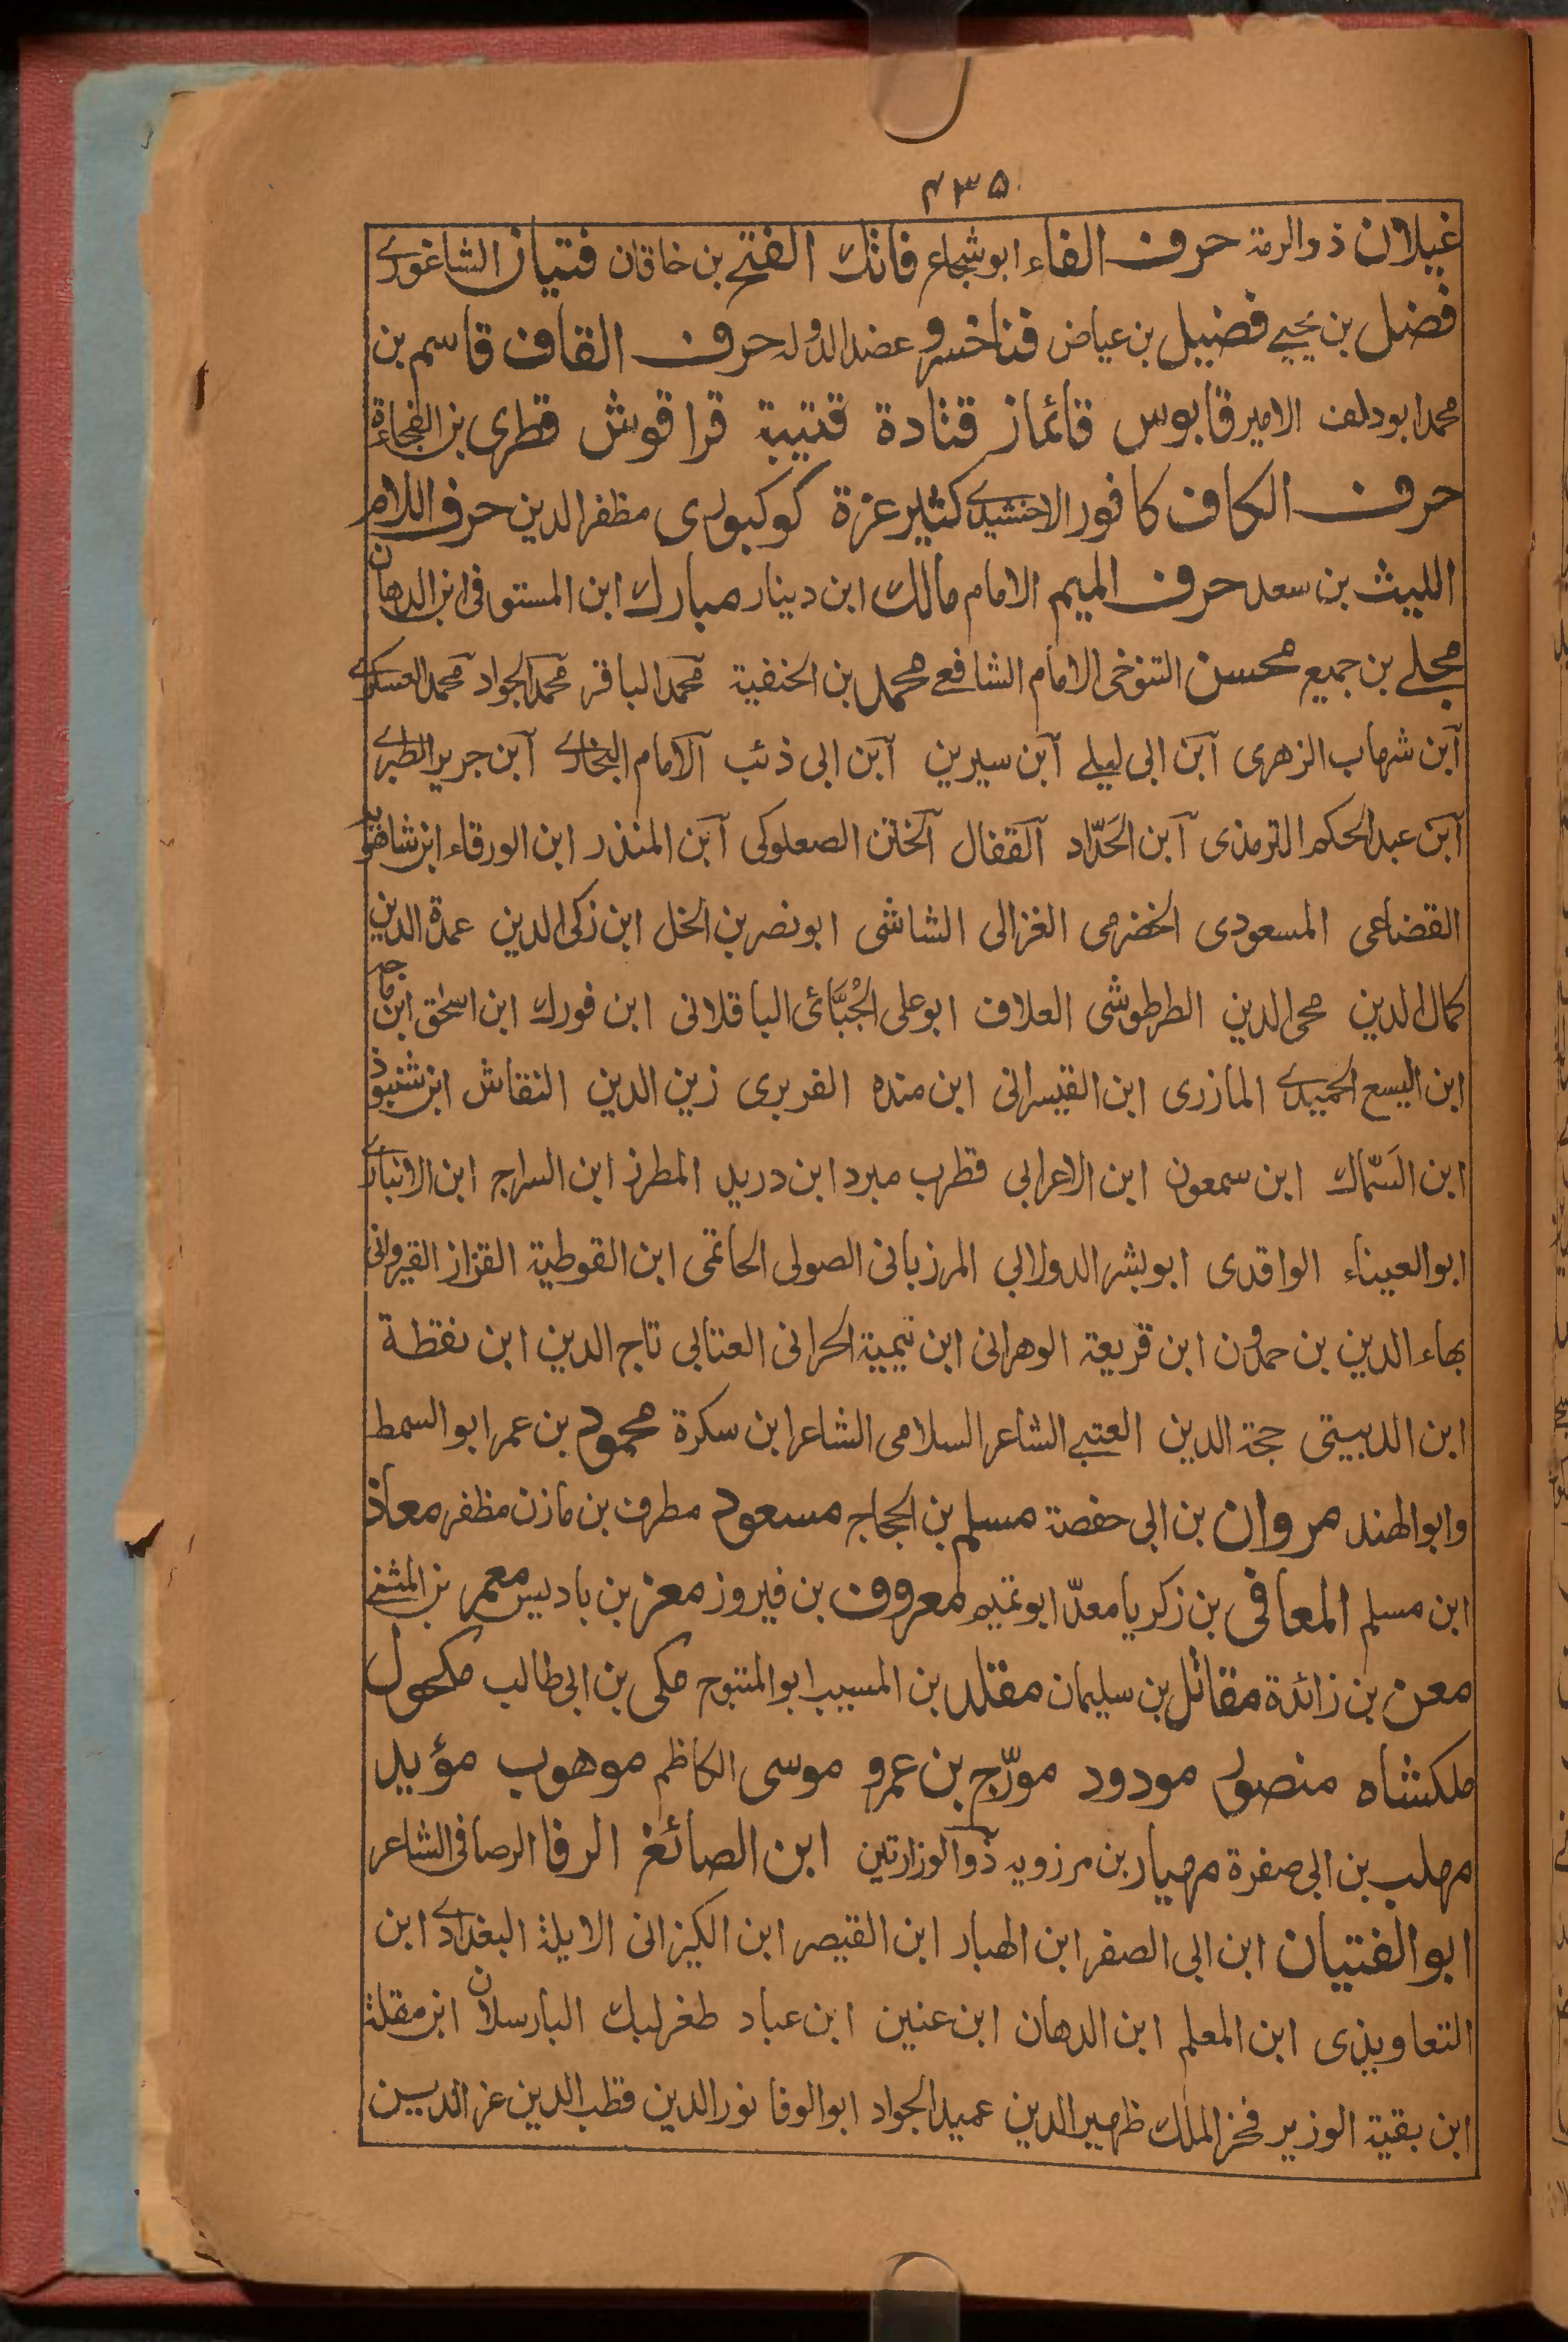 ۴۳۵
غيلان ذوالرمة حرف الفاء ابوشجاع فاتك الفتح بن خاقان فتيان الشاغوري
فضل بن يحيى فضيل بن عياض فناخسرو عضدالدولة حرف القاف قاسم بن
محمد ابودلف الامير قابوس قائماز قتادة قتيبة قراقوش قطرى بن الفجاءة
حرف الكاف كافور الاخشيدي كثير عزة كوكبورى مظفرالدين حرف اللام
الليث بن سعد حرف الميم الامام مالك ابن دينار مبارك ابن المستوفى ابن الدهان
مجلى بن جميع محسن التنوخى الامام الشافعى محمد بن الحنفية محمد الباقر محمد الجواد محمد العسكري
ابن شهاب الزهرى ابن ابى ليلى ابن سيرين ابن ابى ذئب الامام البخاري ابن جرير الطبري
ابن عبدالحكم الترمذى ابن الحَدّاد القفال الختن الصعلوكى ابن المنذر ابن الورقاء ابن شاهويه
القضاعى المسعودى الخضرمى الغزالى الشاشى ابونصر بن الخل ابن زكى الدين عمدة الدين
كمال الدين محى الدين الطرطوشى العلاف ابوعلى الجُبَّائى الباقلانى ابن فورك ابن اسحٰق ابن ماجه
ابن اليسع الحميدي المازرى ابن القيسرانى ابن منده الفربرى زين الدين النقاش ابن شنبوذ
ابن السَمّاك ابن سمعون ابن الاعرابى قطرب مبرد ابن دريد المطرز ابن السراج ابن الانباري
ابوالعيناء الواقدى ابوبشر الدولابى المرزبانى الصولى الحاتمى ابن القوطية القزاز القيروانى
بهاء الدين بن حمدون ابن قريعة الوهرانى ابن تيمية الحرانى العتابى تاج الدين ابن نقطة
ابن الدبيثى حجة الدين العتبى الشاعر السلامى الشاعر ابن سكرة محمود بن عمر ابو السمط
وابوالهند مروان بن ابى حفصة مسلم بن الحجاج مسعود مطرف بن مازن مظفر معاذ
ابن مسلم المعافى بن زكريا معدّ ابوتميم معروف بن فيروز معز بن باديس معمر بن المثنى
معن بن زائدة مقاتل بن سليمان مقلد بن المسيب ابو المتوج مكى بن ابى طالب مكحول
ملكشاه منصور مودود مورّج بن عمرو موسى الكاظم موهوب مؤيد
مهلب بن ابى صفرة مهيار بن مرزويه ذوالوزارتين ابن الصائغ الرفا الرصافى الشاعر
ابوالفتيان ابن ابى الصقر ابن الهبار ابن القيصر ابن الكيزانى الابله البغدادي ابن
التعاويذى ابن المعلم ابن الدهان ابن عنين ابن عباد طغرلبك البارسلان ابن مقلة
ابن بقية الوزير فخر الملك ظهير الدين عميد الجواد ابوالوفا نورالدين قطب الدين عز الدين